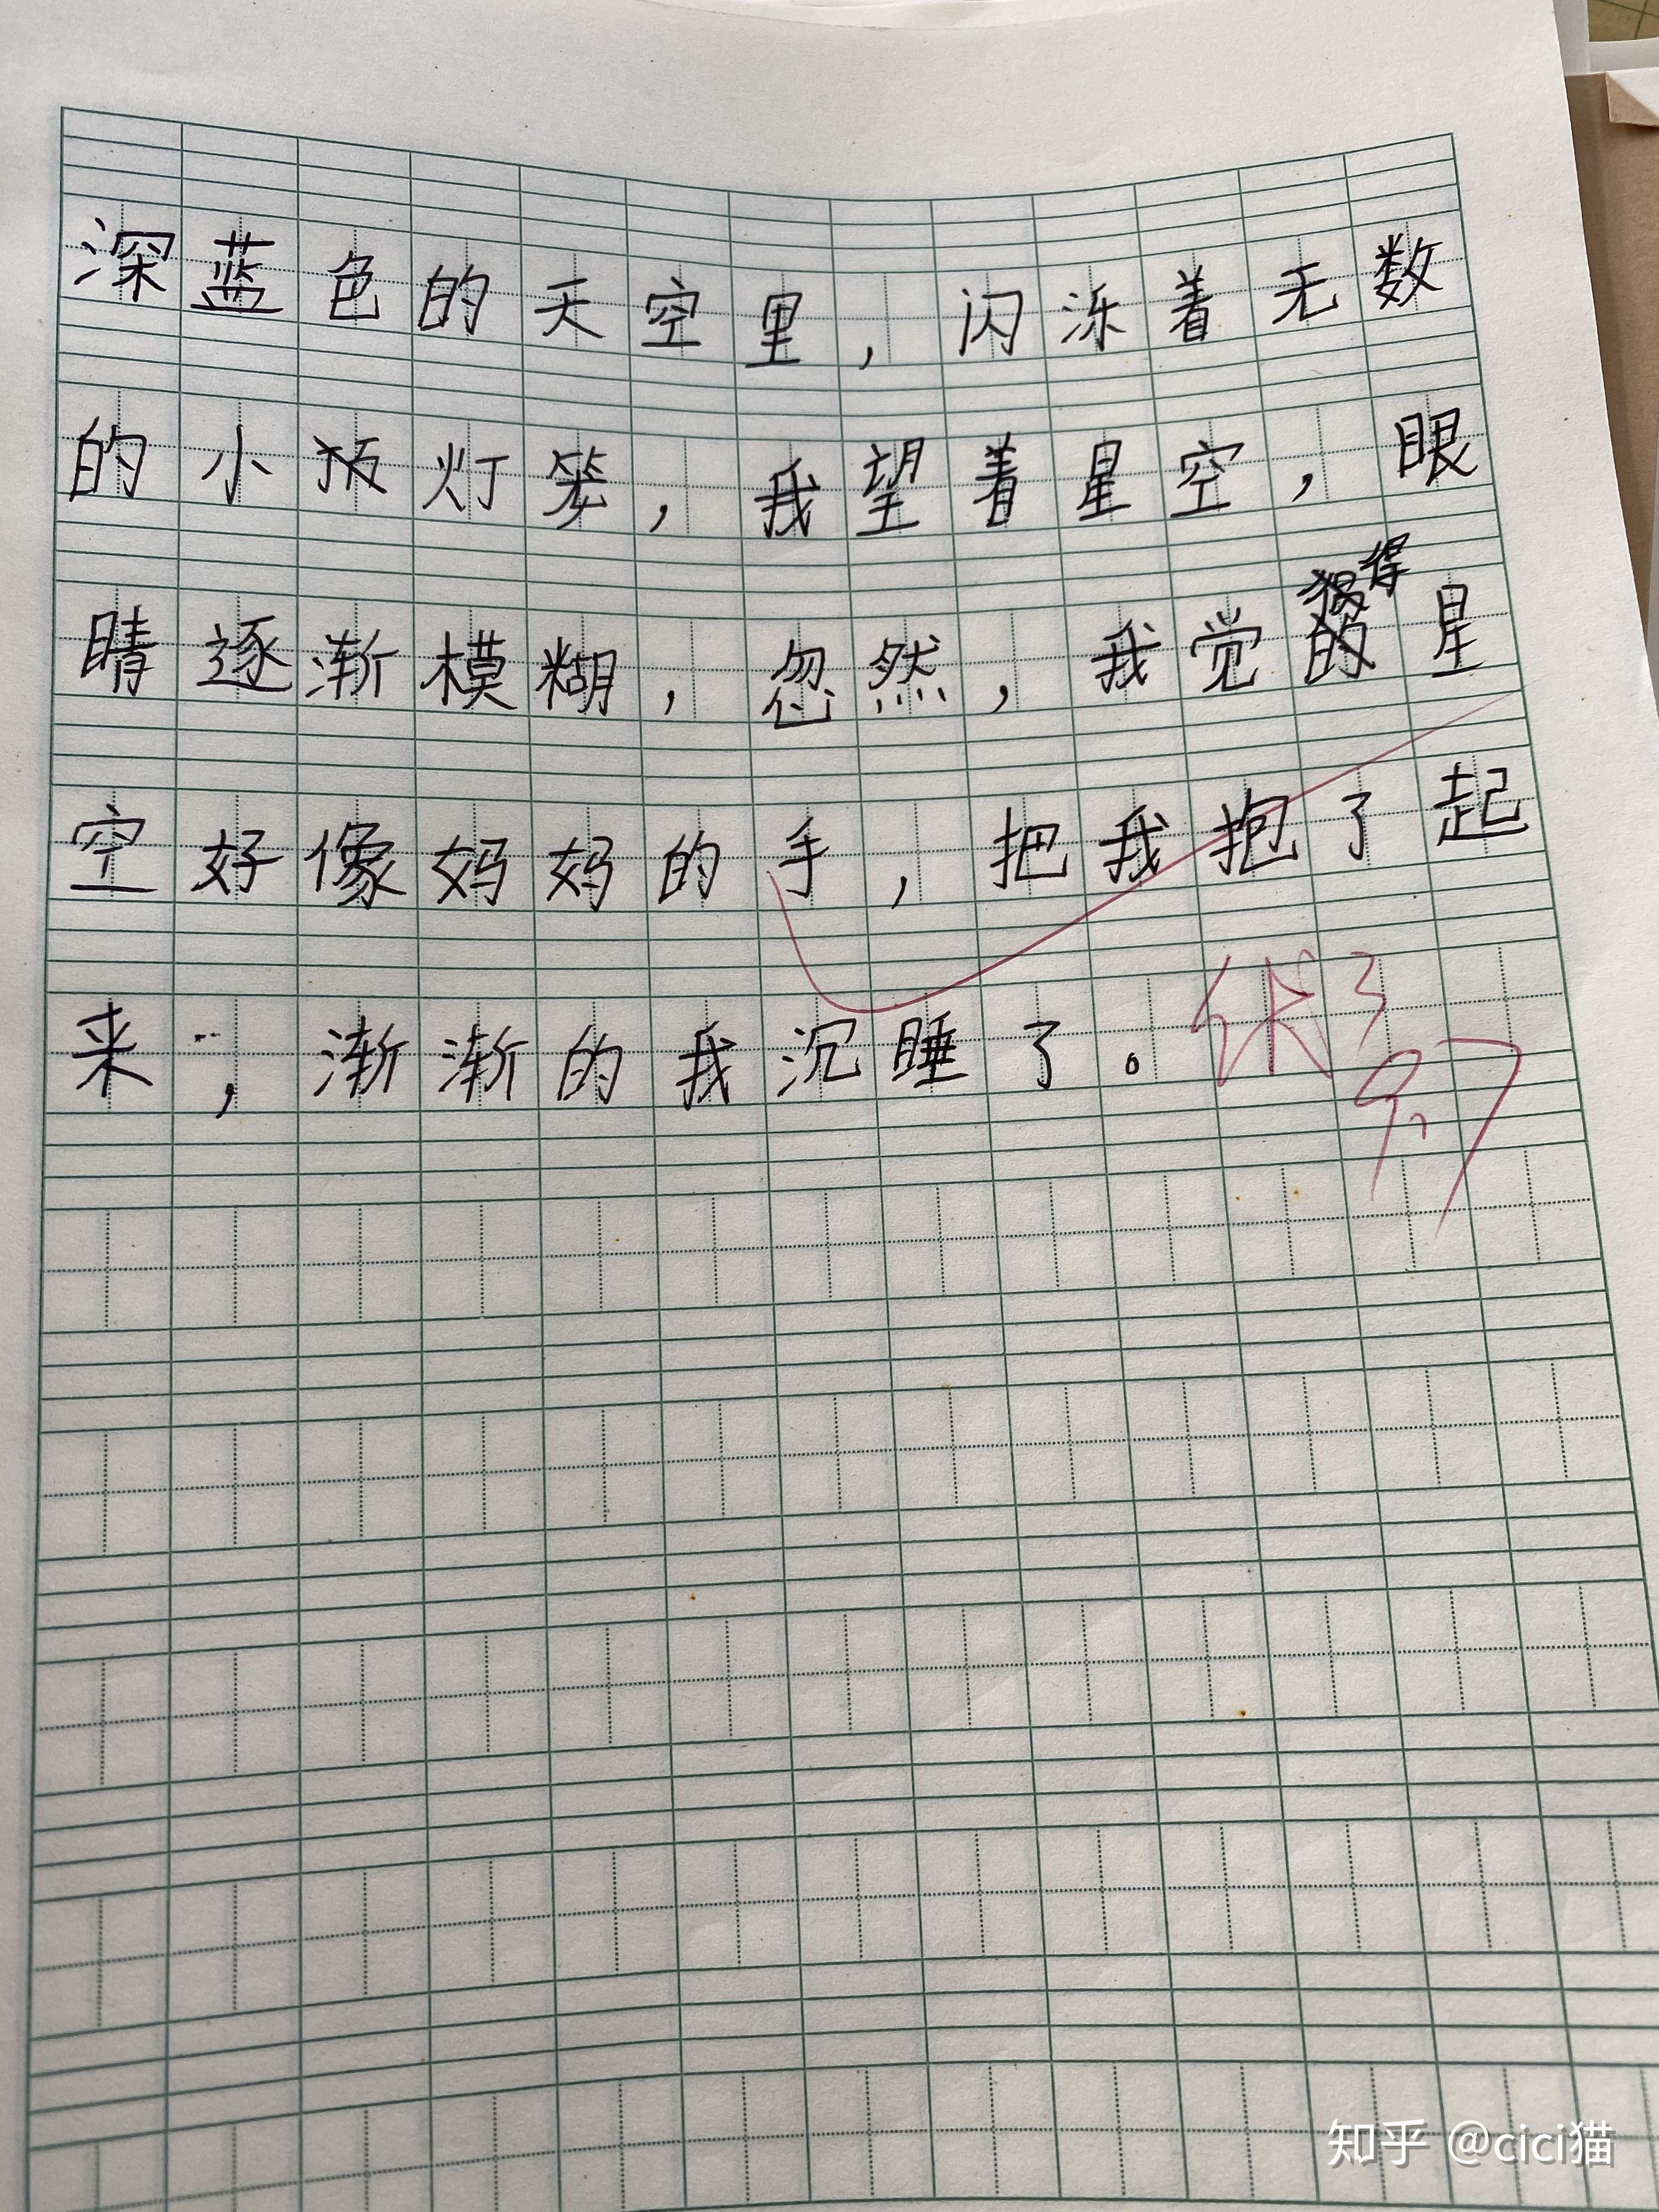 深蓝色的天空里，闪泺着无数
的小灯笼，我望着星空，眼
得
睛逐渐模糊，忽然，我觉的星
空好像妈妈的手，把我抱了起
来，渐渐的我沉睡了。
9.7
知乎 @cici猫